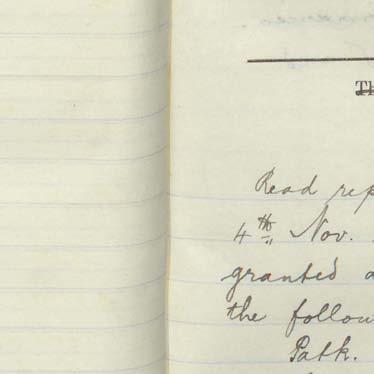 Th
Read rep
4th Nov.
granted a
the follow
Patk.